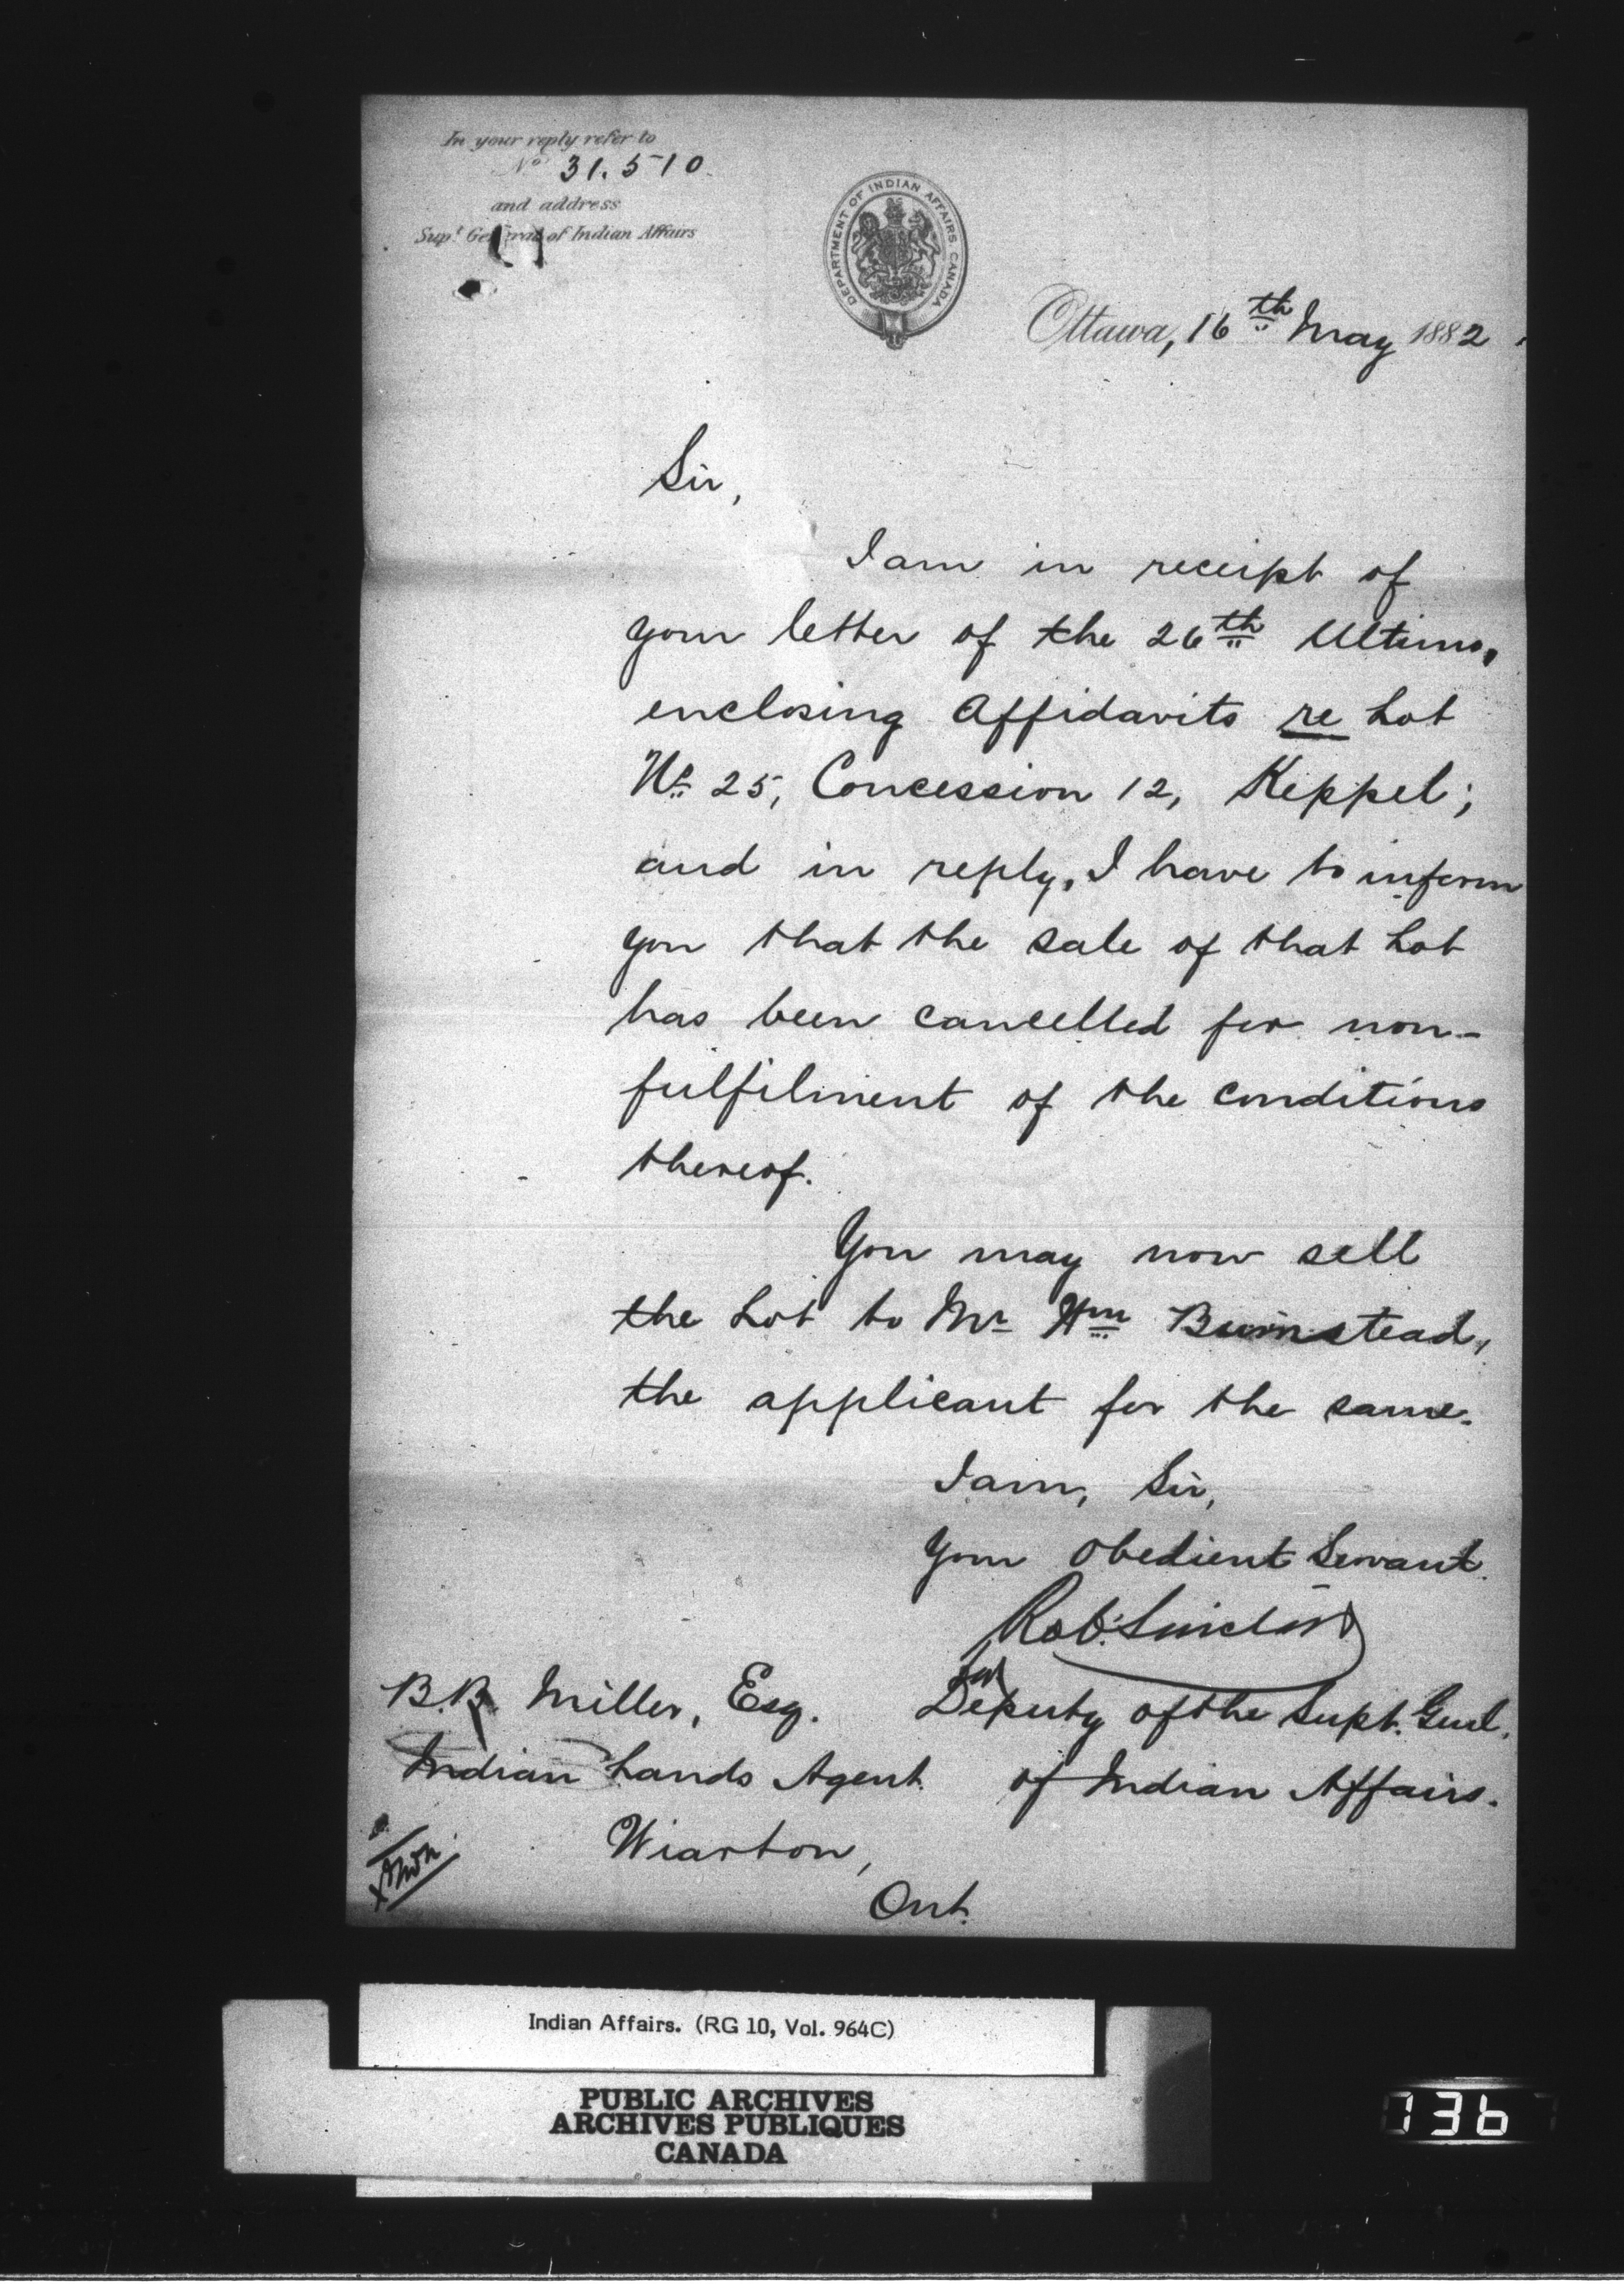 In your reply refer to
No 31.510.
and address
Supt General of Indian Affairs
DEPARTMENT OF INDIAN AFFAIRS CANADA
Ottawa, 16th May 1882.
Sir,
I am in receipt of
your letter of the 26th Ultimo,
enclosing Affidavits re Lot
No. 25, Concession 12, Keppel;
and in reply, I have to inform
you that the sale of that Lot
has been cancelled for non-
fulfilment of the conditions
thereof.
You may now sell
the Lot to Mr Wm Burnstead,
the applicant for the same.
I am, Sir,
Your Obedient Servant.
Rob. Sinclair
B.B. Miller, Esq.
Deputy of the Supt. Genl.
Indian Lands Agent.
of Indian Affairs.
Wiarton,
Ont.
Indian Affairs. (RG 10, Vol. 964C)
PUBLIC ARCHIVES
ARCHIVES PUBLIQUES
CANADA
736